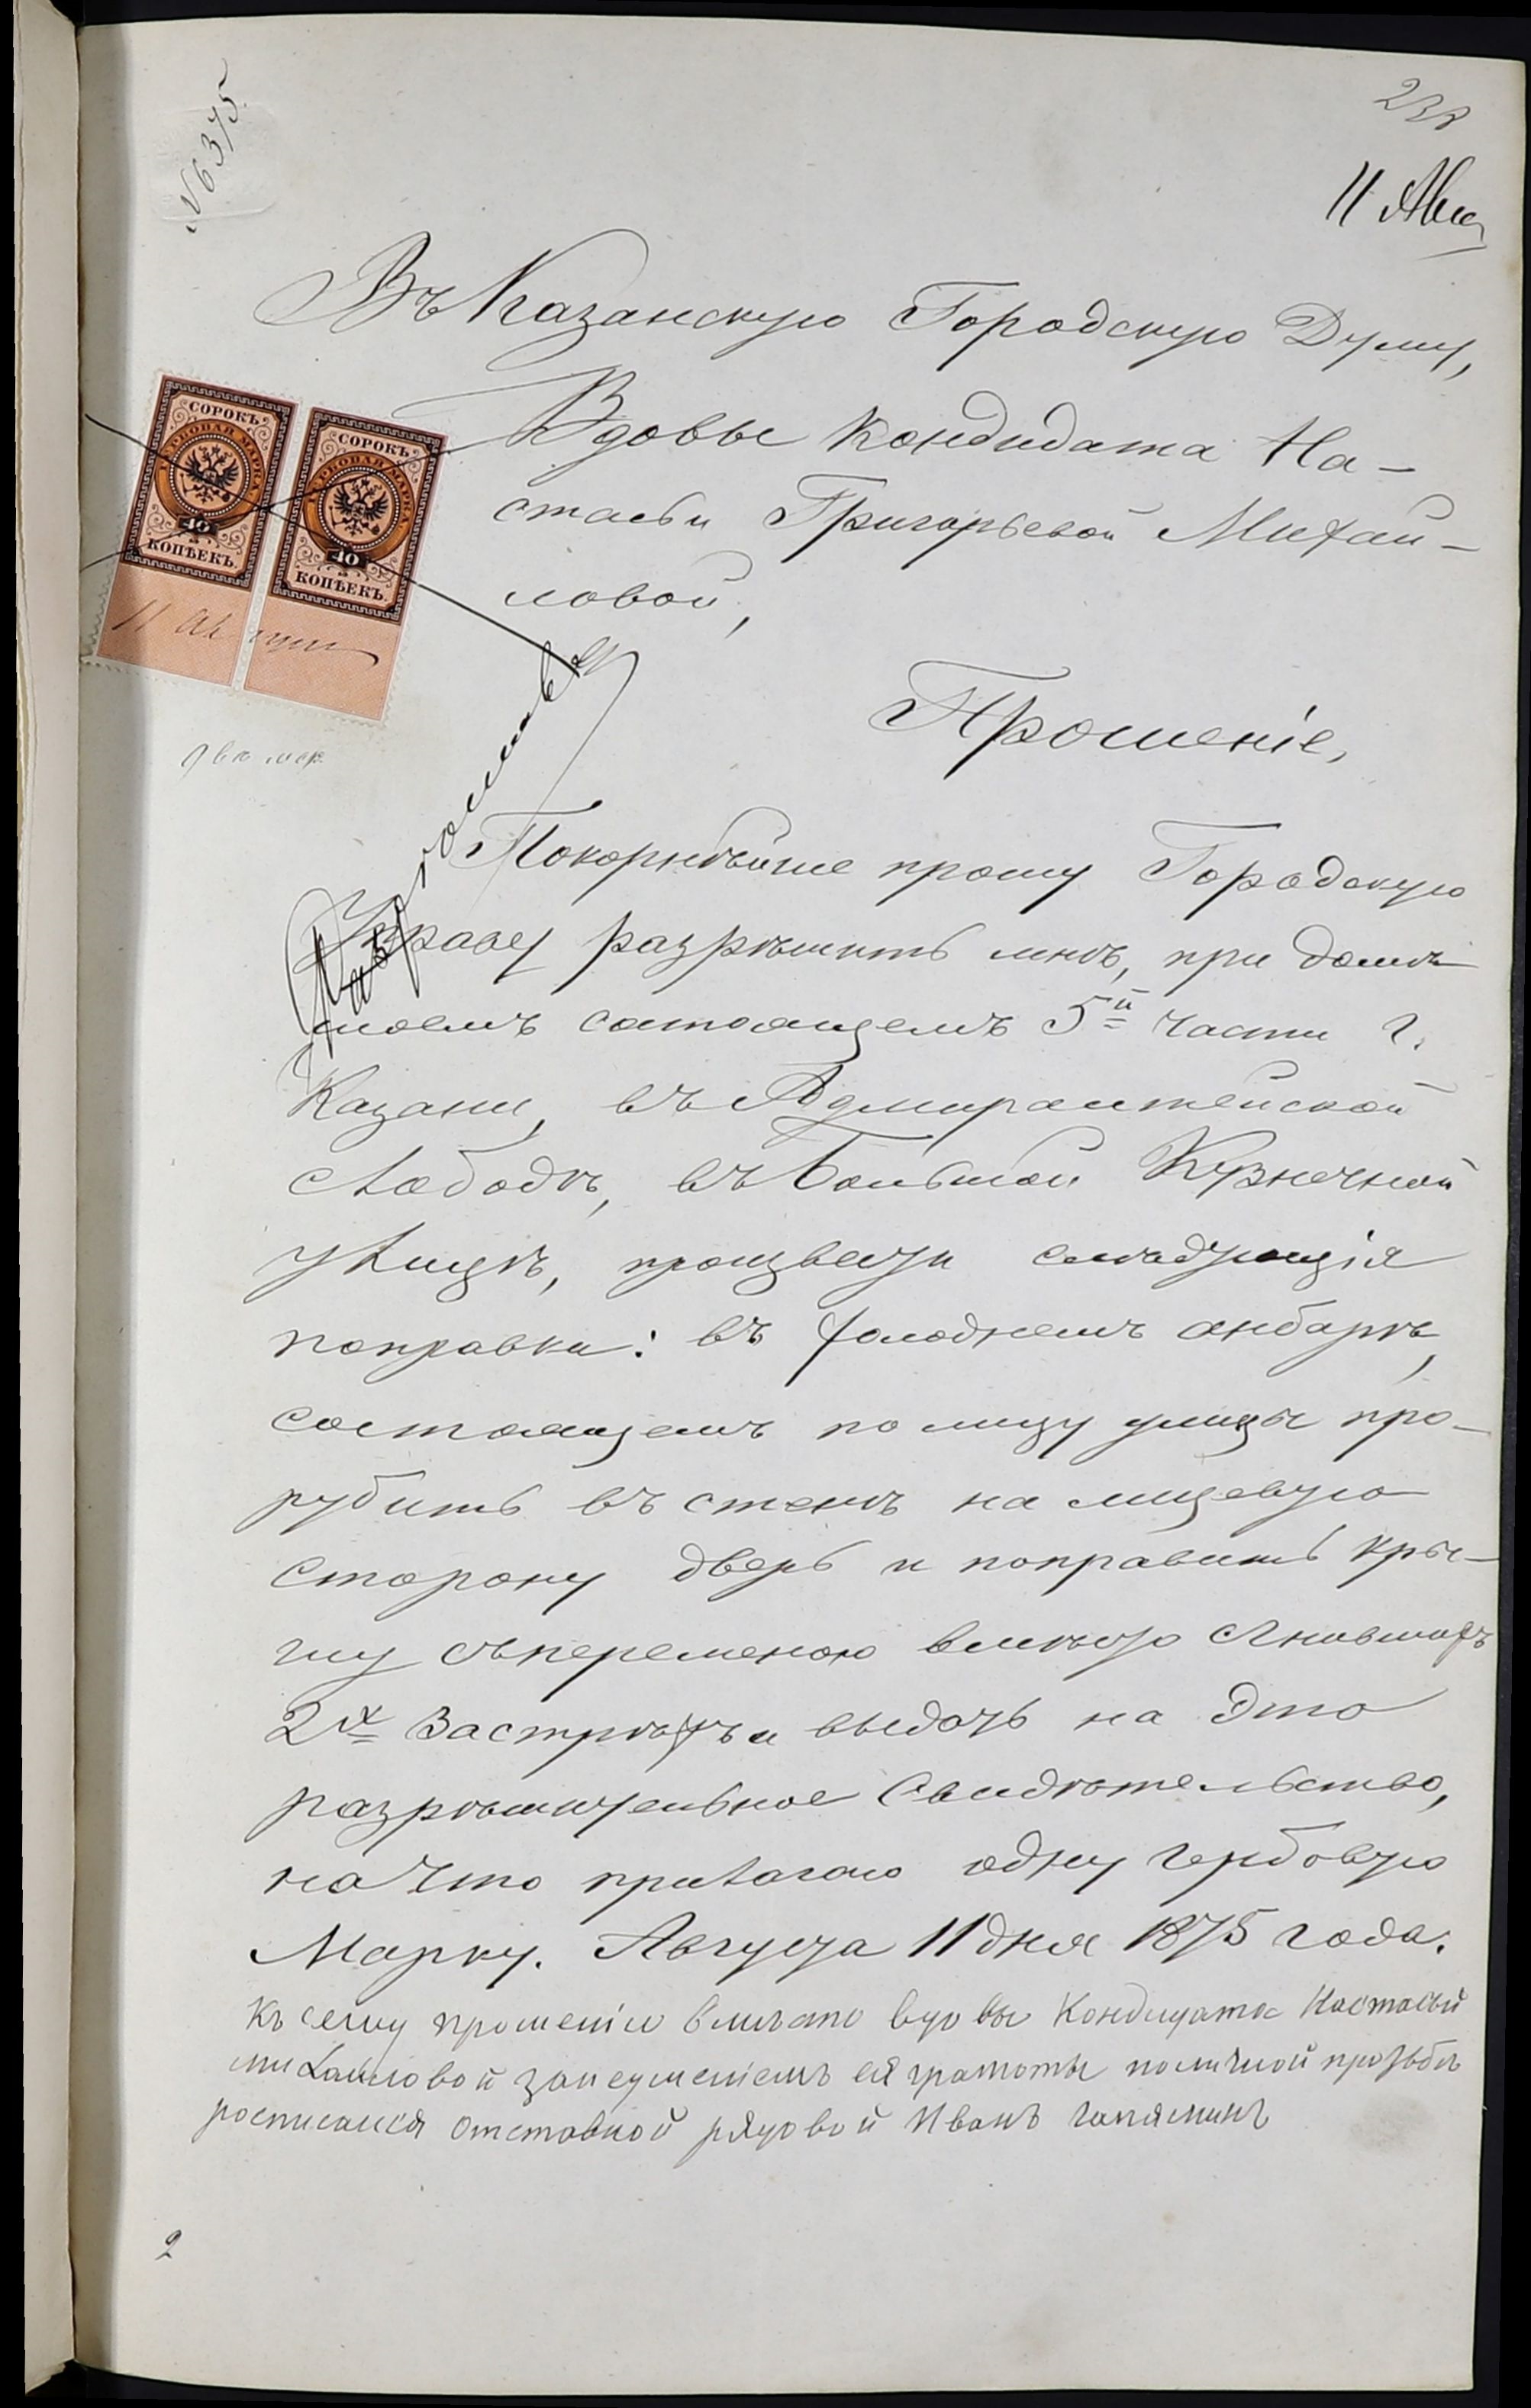 № 6375
238
11 Авг
Въ Казанскую Городскую Думу,
Вдовы Кондидата На-
стасьи Григорьевой Михай-
ловой,
СОРОКЪ
ГЕРБОВАЯ МАРКА
40
КОПѢЕКЪ.
СОРОКЪ
ГЕРБОВАЯ МАРКА
40
КОПѢЕКЪ.
11 Августа
две мар
Прошеніе,
Покорнѣйше прошу Городскую
Управу разрѣшить мнѣ, при домѣ
моемъ состоящемъ 5й части г.
Казани, въ Адмиралтейской
слободѣ, въ Большой Кузнечной
улицѣ, произвести слѣдующія
поправки: въ холоднемъ анбарѣ,
состоящемъ по лицу улицы про-
рубить въ стенѣ на лицевую
сторону дверь и поправить кры-
шу съ переменою вместо сгнившихъ
2х застрѣхъ и выдать на это
разрѣшительное свидѣтельство,
на что прилагаю одну гербовую
Марку. Августа 11 дня 1875 года.
Къ сему прошенію вмѣсто вдовы Кондидата Настасьи
михайловой за неуменіемъ ея грамоты по личной прозьбѣ
росписался отставной рядовой Иванъ
2